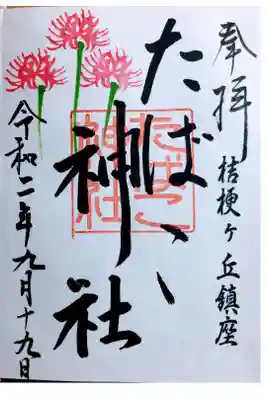 奉拝
桔梗ヶ丘鎮座
たばこ神社
たばこ
神社
令和二年九月十九日